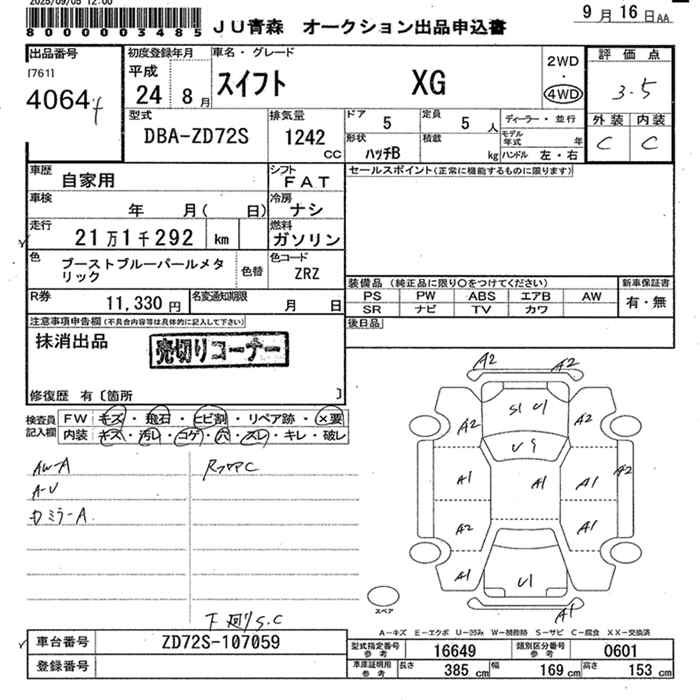 2025/09/05 12:00
80000003485
JU青森 オークション出品申込書
9月16日AA
出品番号
[761]
4064
初度登録年月
平成
24 8月
車名・グレード
スイフト XG
2WD
・
4WD
評価点
3.5
外装 内装
C C
型式
DBA-ZD72S
排気量
1242
CC
ドア 5
定員 5 人
形状
ハッチB
積載
kg
ディーラー・並行
モデル年式 年
ハンドル 左・右
車歴 自家用
シフト
FAT
セールスポイント(正常に機能するものに限ります)
車検 年 月( 日)
冷房
ナシ
走行 21万1千292 km
燃料
ガソリン
色
ブーストブルーパールメタリック
色替
色コード
ZRZ
装備品 (純正品に限り○をつけてください)
新車保証書
PS PW ABS エアB AW
有・無
SR ナビ TV カワ
R券 11,330 円
名変通知期限
月 日
後日品
注意事項申告欄(不具合内容等は具体的に記入して下さい)
抹消出品
売切りコーナー
修復歴 有〔箇所 〕
検査員記入欄
FW キズ・飛石・ヒビ割・リペア跡・×要
内装 キズ・汚レ・コゲ・穴・スレ・キレ・破レ
AW-A
A-U
DミラーA
RフロアC
下廻りS.C
A2 A2
S1 U1
A2 A2
U9
A1 A1 A1 A2
A2 A1
A1 U1
A1
スペア
A-キズ E-エクボ U-凹み W-補修跡 S-サビ C-腐食 XX-交換済
車台番号 ZD72S-107059
登録番号
型式指定番号参考 16649
類別区分番号参考 0601
車庫証明用参考
長さ 385 cm
幅 169 cm
高さ 153 cm